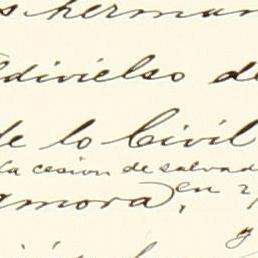 s herman
ldivielso de
de lo Civil
la cesion de salvad
amora, en 2
y